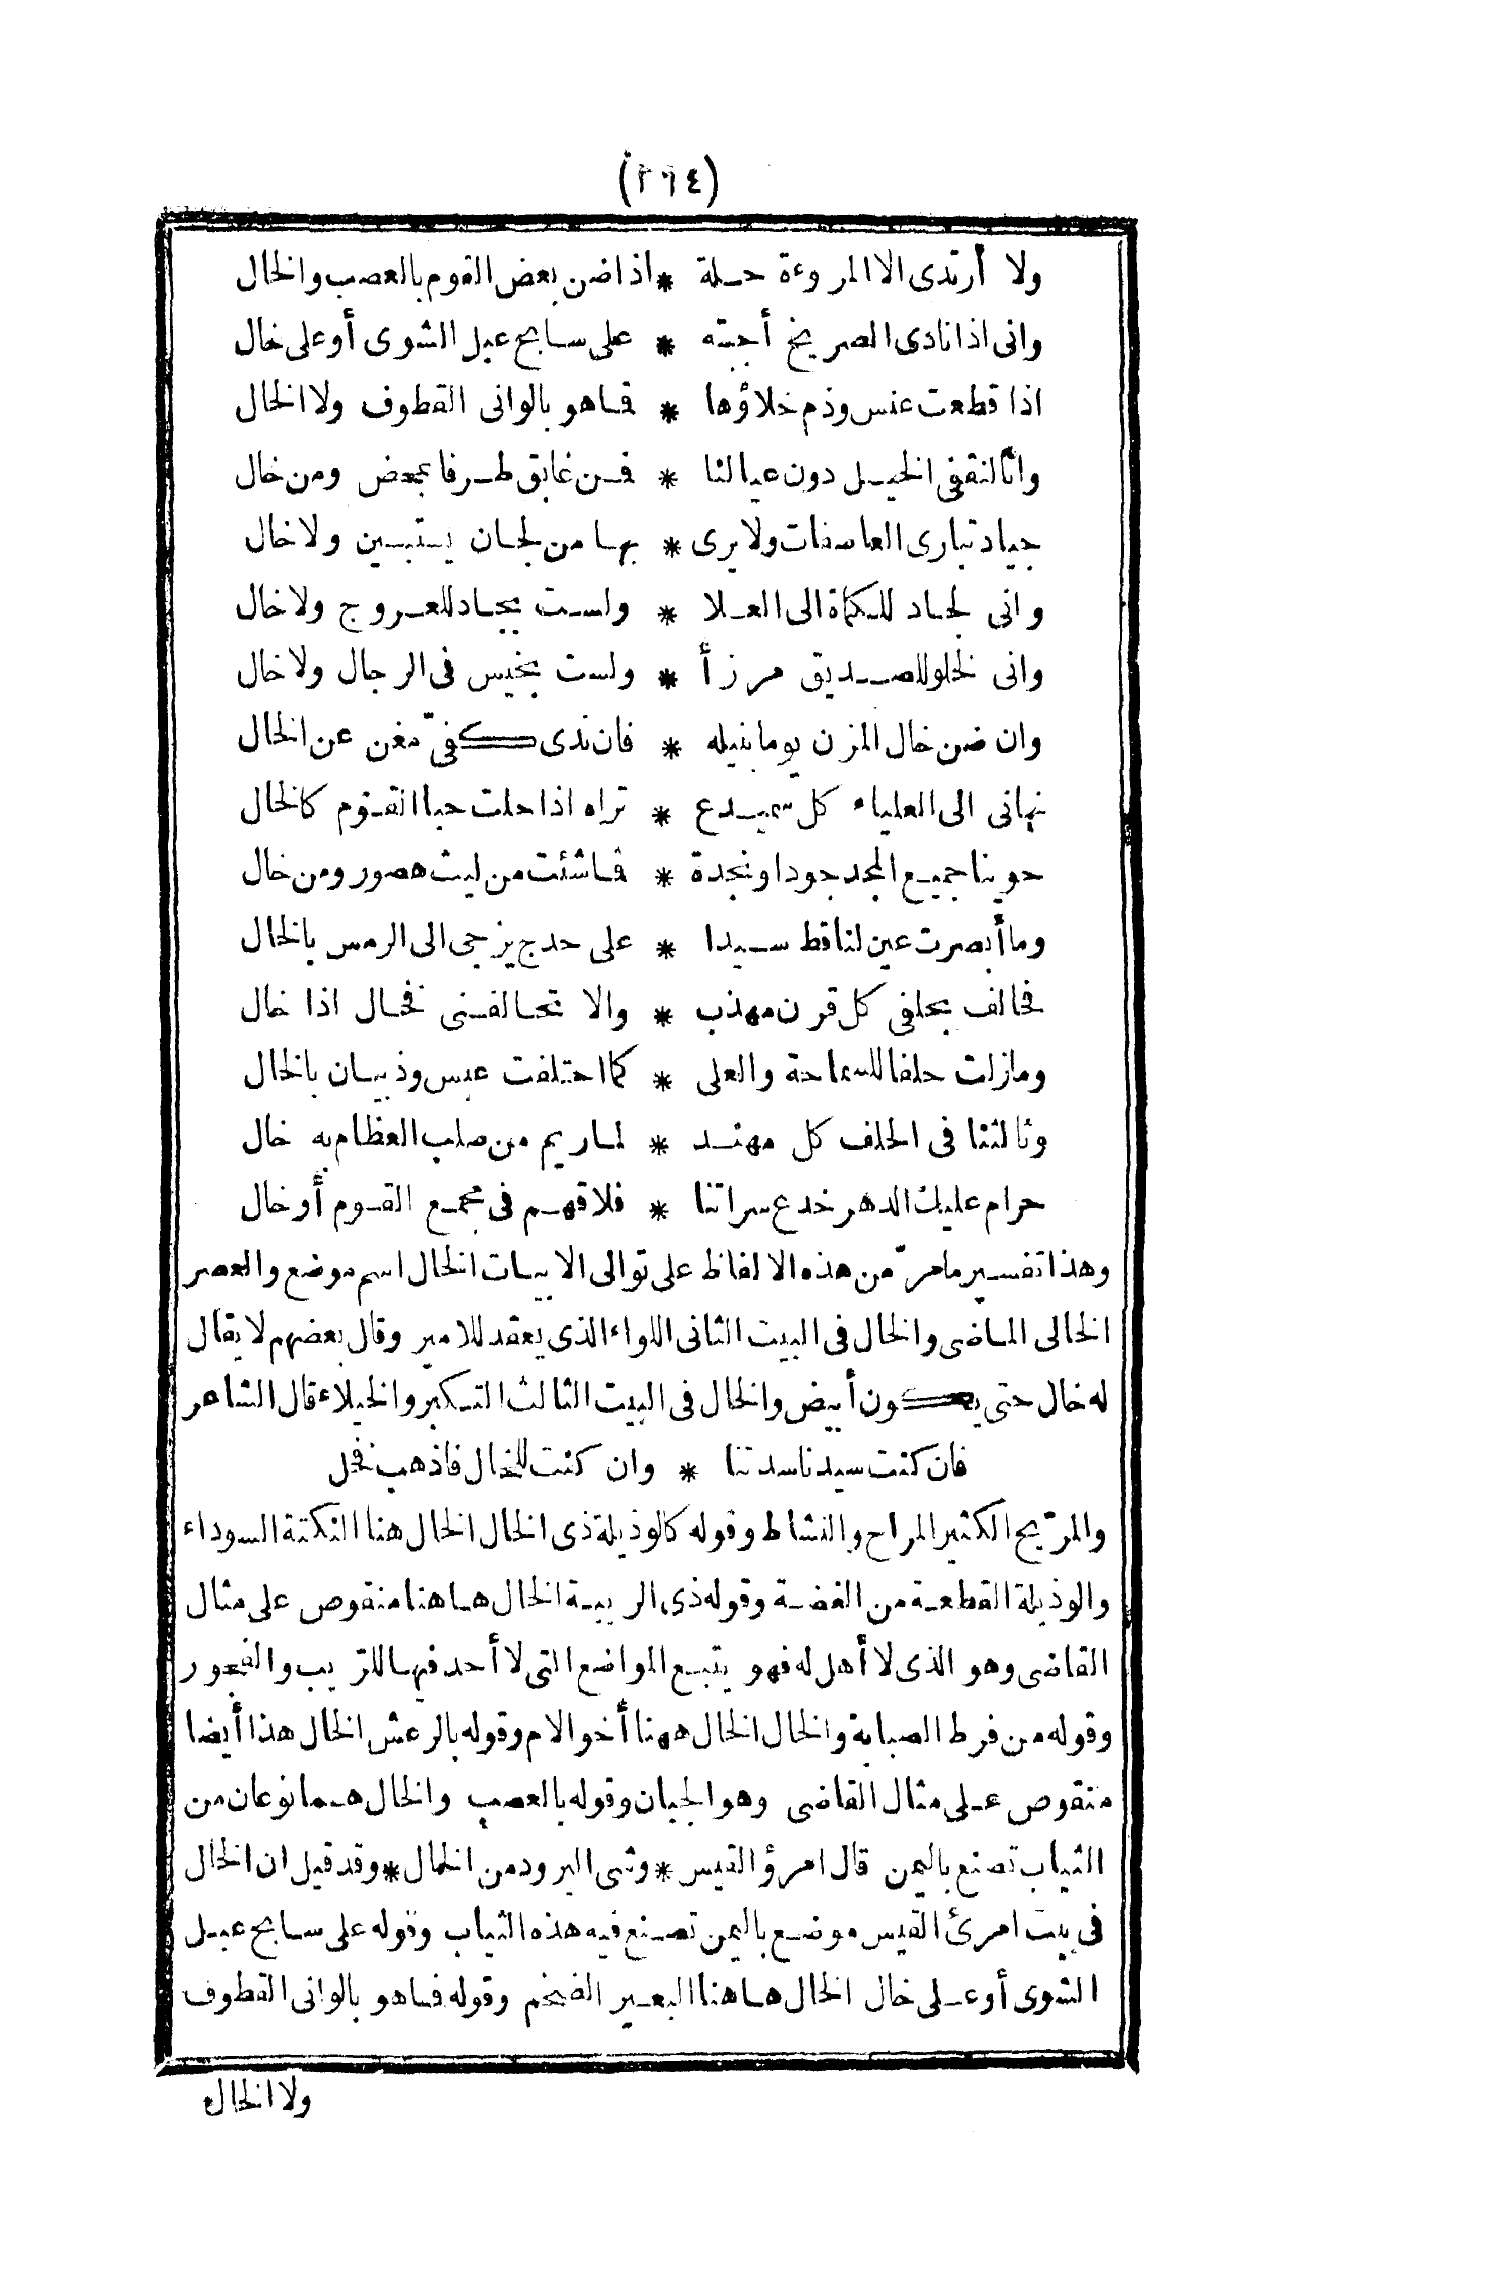 (٢٦٤)
ولا أرتدى الا المروءة حلة * اذا ضن بعض القوم بالعصب والخال
وانى اذا نادى الصريخ أجبته * على سابح عبل الشوى أو على خال
اذا قطعت عنس وذم خلاؤها * فما هو بالوانى القطوف ولا الخال
وانا لنقفى الخيل دون عيالنا * فمن غابق طرفا بمحض ومن خال
جياد تبارى العاصفات ولا يرى * بها من لجان يستبين ولا خال
وانى لحاد للكماة الى العلا * ولست بحاد للعروج ولا خال
وانى لخلو للصديق مرزأ * ولست بخيس فى الرجال ولا خال
وان ضن خال المزن يوما بنيله * فان ندى كفىّ مغن عن الخال
نمانى الى العلياء كل سميدع * تراه اذا حلت حبا القوم كالخال
حوينا جميع المجد جودا ونجدة * فما شئت من ليث هصور ومن خال
وما أبصرت عين لنا قط سيدا * على حدج يزجى الى الرمس بالخال
فحالف بحلفى كل قرن مهذب * والا تحالفنى فخال اذا خال
ومازلت حلفا للسماحة والعلى * كما احتلفت عبس وذبيان بالخال
وثالثنا فى الحلف كل مهند * لما ريم من صلب العظام به خال
حرام عليك الدهر خدع سراتنا * فلاقهم فى مجمع القوم أو خال
وهذا تفسير ما مرّ من هذه الالفاظ على توالى الابيات الخال اسم موضع والعصر
الخالى الماضى والخال فى البيت الثانى اللواء الذى يعقد للامير وقال بعضهم لا يقال
له خال حتى يكون أبيض والخال فى البيت الثالث التكبر والخيلاء قال الشاعر
فان كنت سيدنا سدتنا * وان كنت للخال فاذهب فخل
والمرّيح الكثير المراح والنشاط وقوله كالوذيلة ذى الخال الخال هنا النكتة السوداء
والوذيلة القطعة من الفضة وقوله ذى الريبة الخال هاهنا منقوص على مثال
القاضى وهو الذى لا أهل له فهو يتبع المواضع التى لا أحد فيها للرّيب والفجور
وقوله من فرط الصبابة والخال الخال ههنا أخو الام وقوله بالرعش الخال هذا أيضا
منقوص على مثال القاضى وهو الجبان وقوله بالعصب والخال هما نوعان من
الثياب تصنع باليمن قال امرؤ القيس * وشى البرود من الخال * وقد قيل ان الخال
فى بيت امرئ القيس موضع باليمن تصنع فيه هذه الثياب وقوله على سابح عبل
الشوى أو على خال الخال هاهنا البعير الضخم وقوله فما هو بالوانى القطوف
ولا الخال